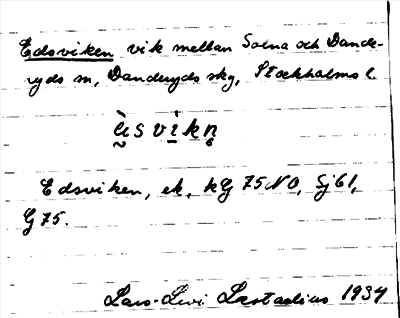 Edsviken vik mellan Solna och Dande-
ryds sn, Danderyds skg, Stockholms l.
ḛ̀svi̱kn̥
Edsviken, ek, kG 75 NO, Sj 61,
G 75.
Lars-Levi Læstadius 1934